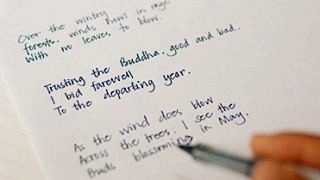 Over the wintry
forests, winds howl in rage
with no leaves to blow.
Trusting the Buddha, good and bad,
I bid farewell
To the departing year.
As the wind does blow
Across the trees, I see the
Buds blossoming in May.